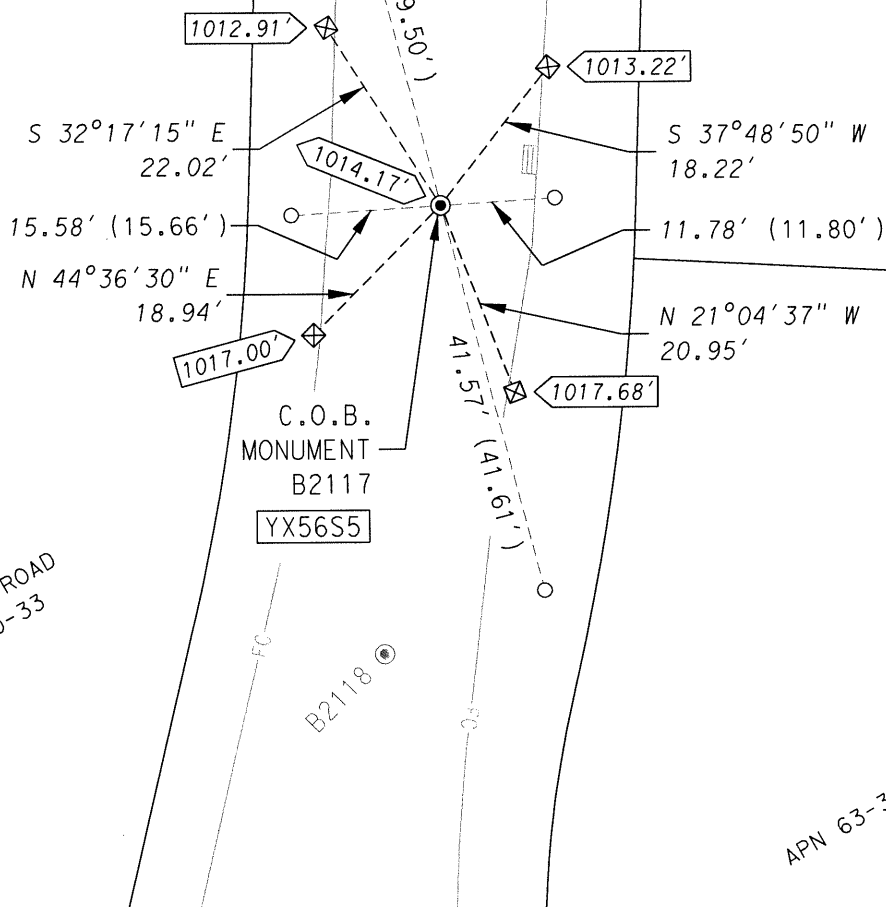 1012.91'
9.50')
1013.22'
S 32°17'15" E
22.02'
S 37°48'50" W
18.22'
1014.17'
15.58' (15.66')
11.78' (11.80')
N 44°36'30" E
18.94'
N 21°04'37" W
20.95'
1017.00'
41.57' (41.61')
1017.68'
C.O.B.
MONUMENT
B2117
YX56S5
ROAD
0-33
FC
B2118
FC
APN 63-3